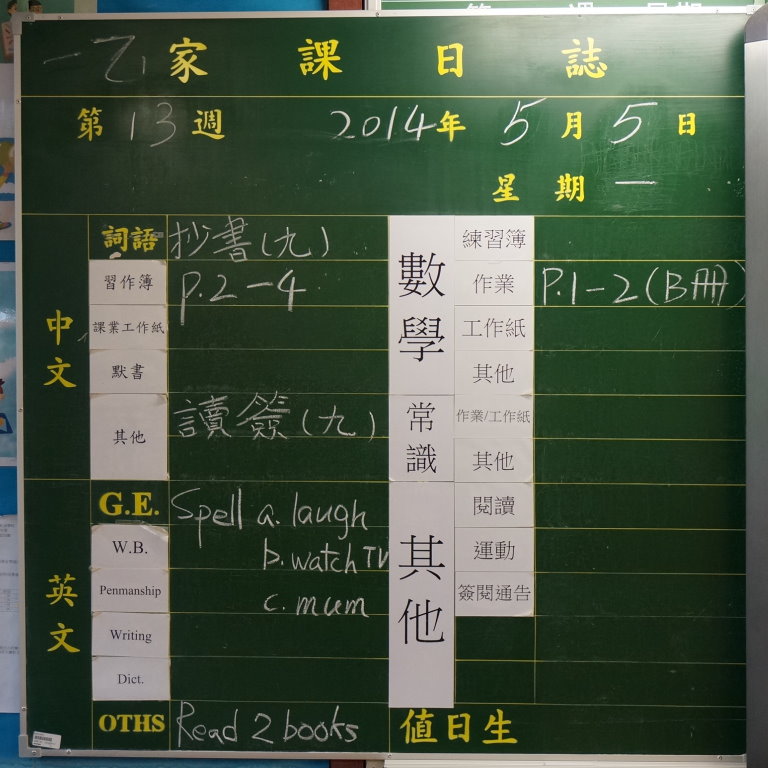 一乙 家課日誌
第13週 2014年5月5日
星期一
中文
詞語 抄書(九)
習作簿 p.2-4
課業工作紙
默書
其他 讀簽(九)
英文
G.E. Spell a. laugh
b. watch TV
W.B.
Penmanship c. mum
Writing
Dict.
OTHS Read 2 books
數學
練習簿
作業 P.1-2(B冊)
工作紙
其他
常識
作業/工作紙
其他
其他
閱讀
運動
簽閱通告
值日生